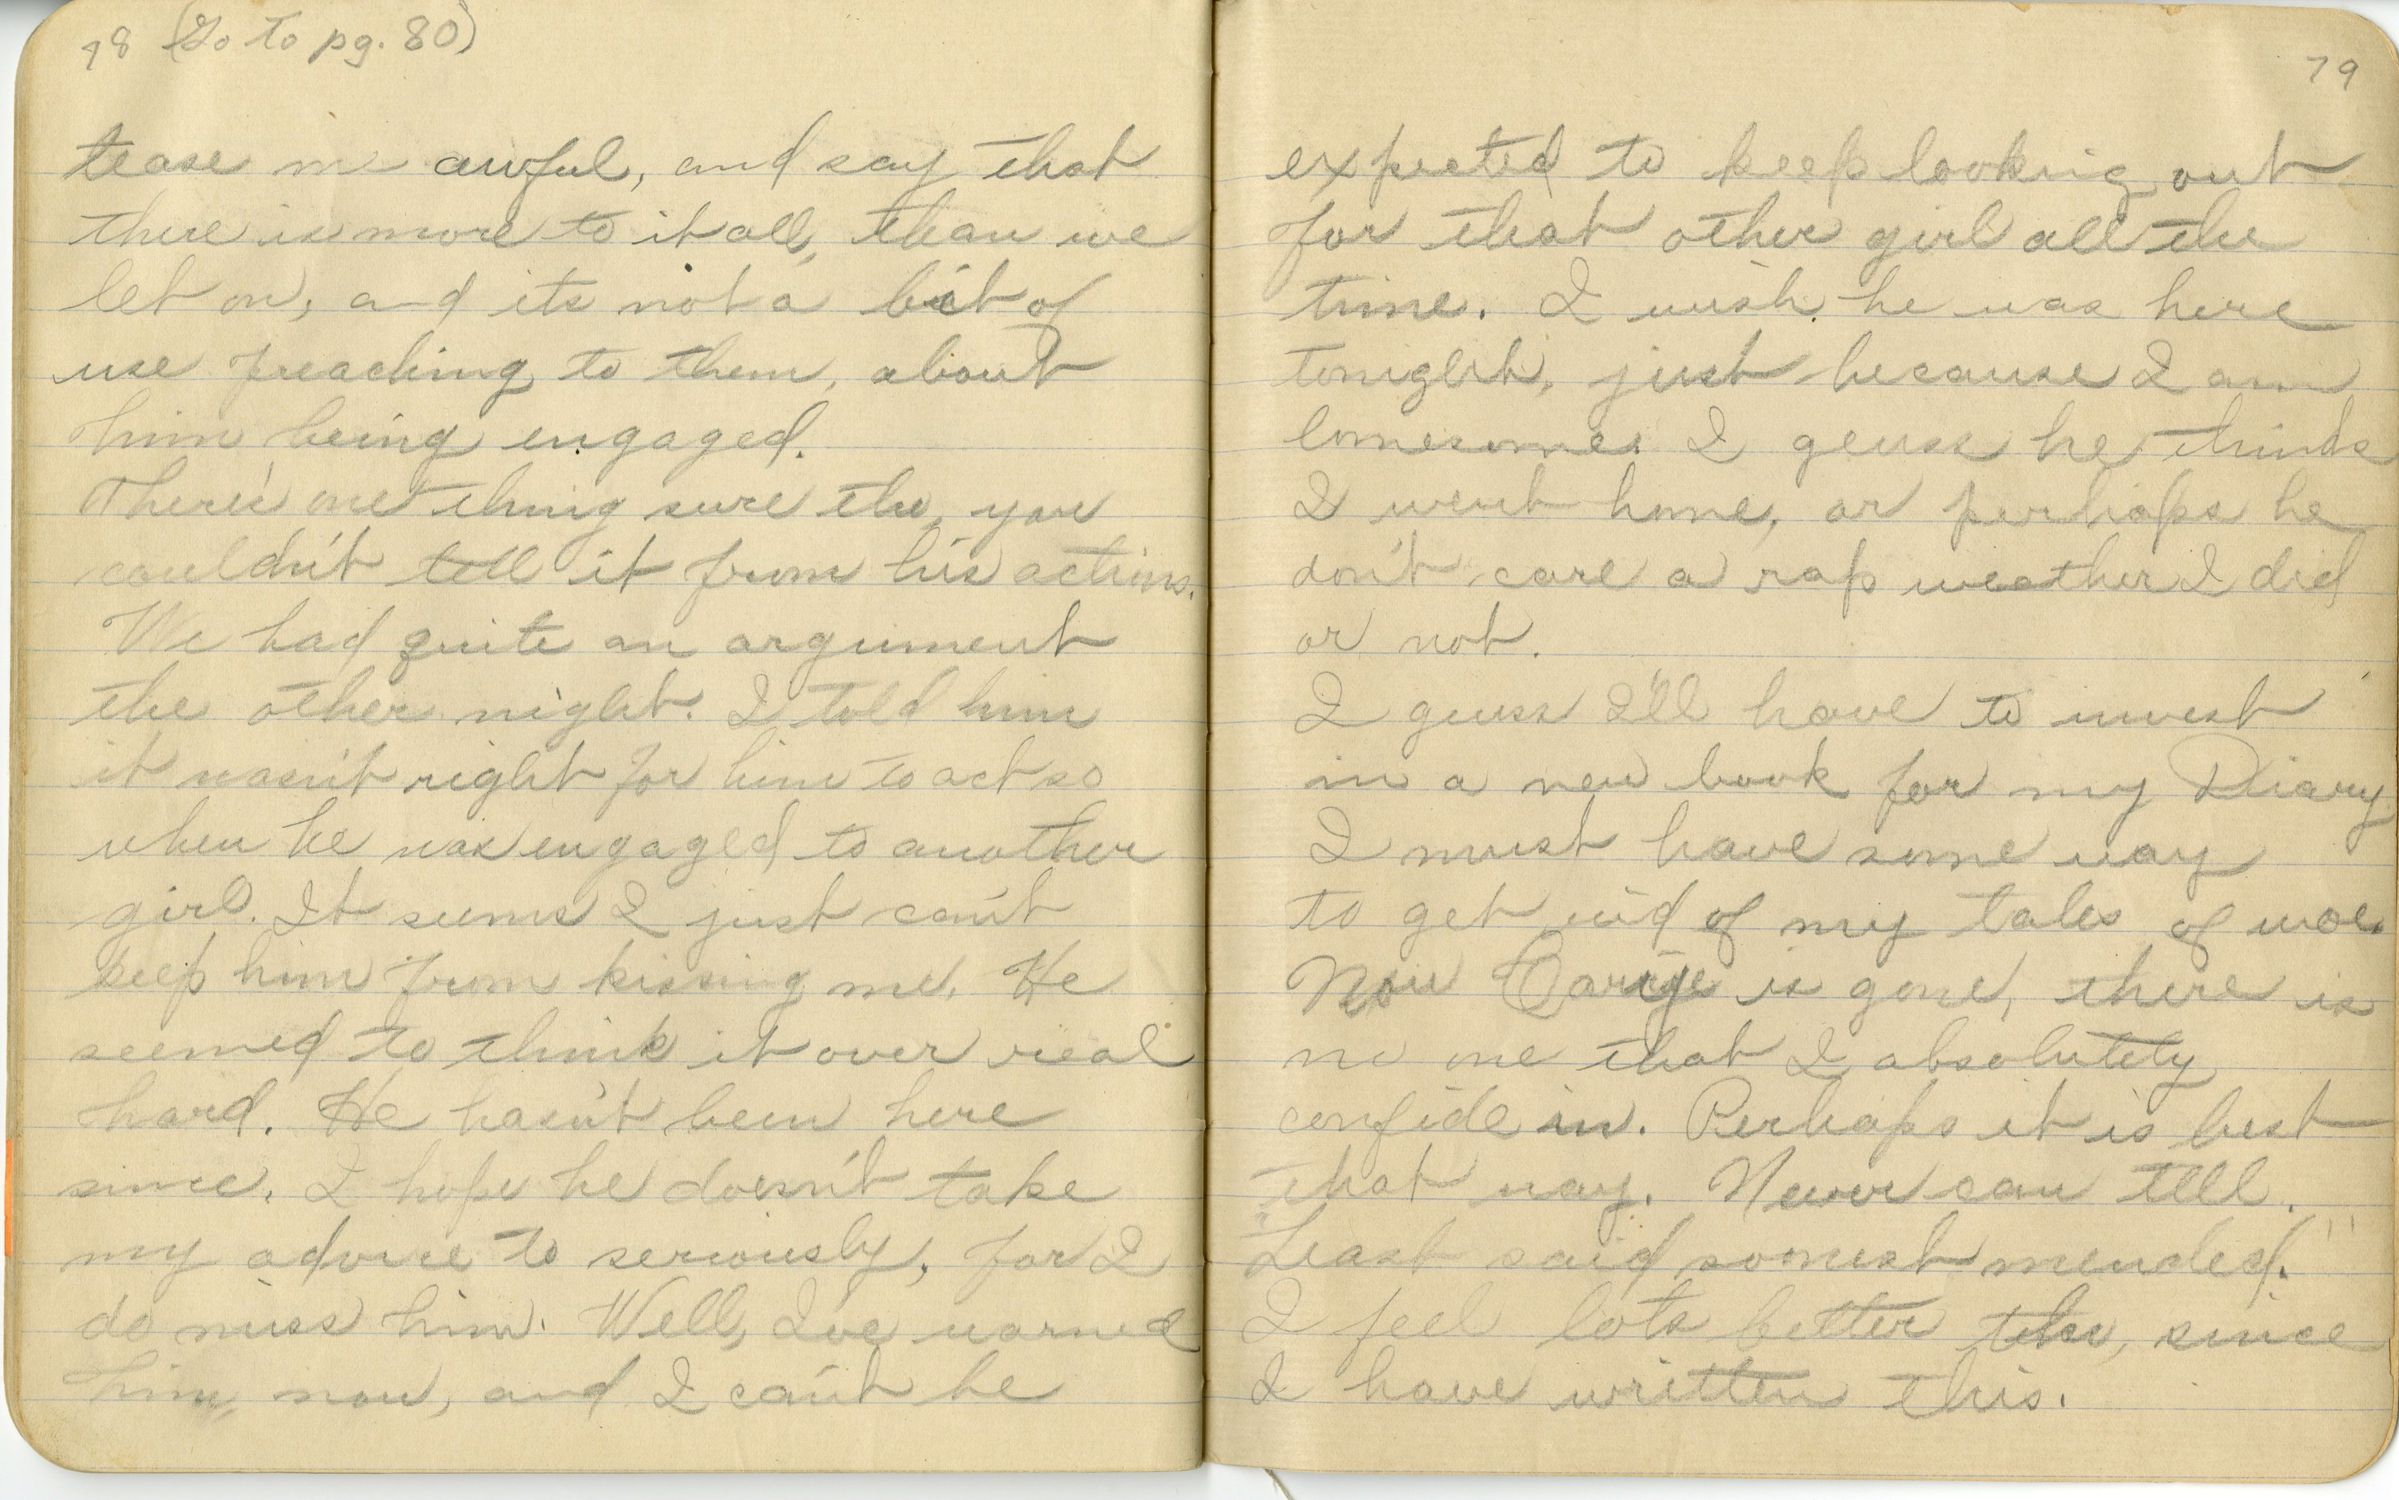 78 (Go to pg. 80)
tease me awful, and say that
there is more to it all, than we
let on, and its not a bit of
use preaching to them, about
him being engaged.
There's one thing sure tho, you
couldn't tell it from his actions.
We had quite an argument
the other night. I told him
it wasn't right for him to act so
when he was engaged to another
girl. It seems I just can't
keep him from kissing me. He
seemed to think it over real
hard. He hasn't been here
since. I hope he doesn't take
my advice to seriously, for I
do miss him. Well, I've warned
him now, and I can't be
79
expected to keep looking out
for that other girl all the
time. I wish he was here
tonight, just because I am
lonesome. I geuss he thinks
I went home, or perhaps he
don't care a rap weather I did
or not.
I guess I'll have to invest
in a new book for my Diary
I must have some way
to get rid of my tales of woe.
Now is gone, there is
no one that I absolutely
confide in. Perhaps it is best
that way. Never can tell.
"Least said soonest mended."
I feel lots better tho, since
I have written this.